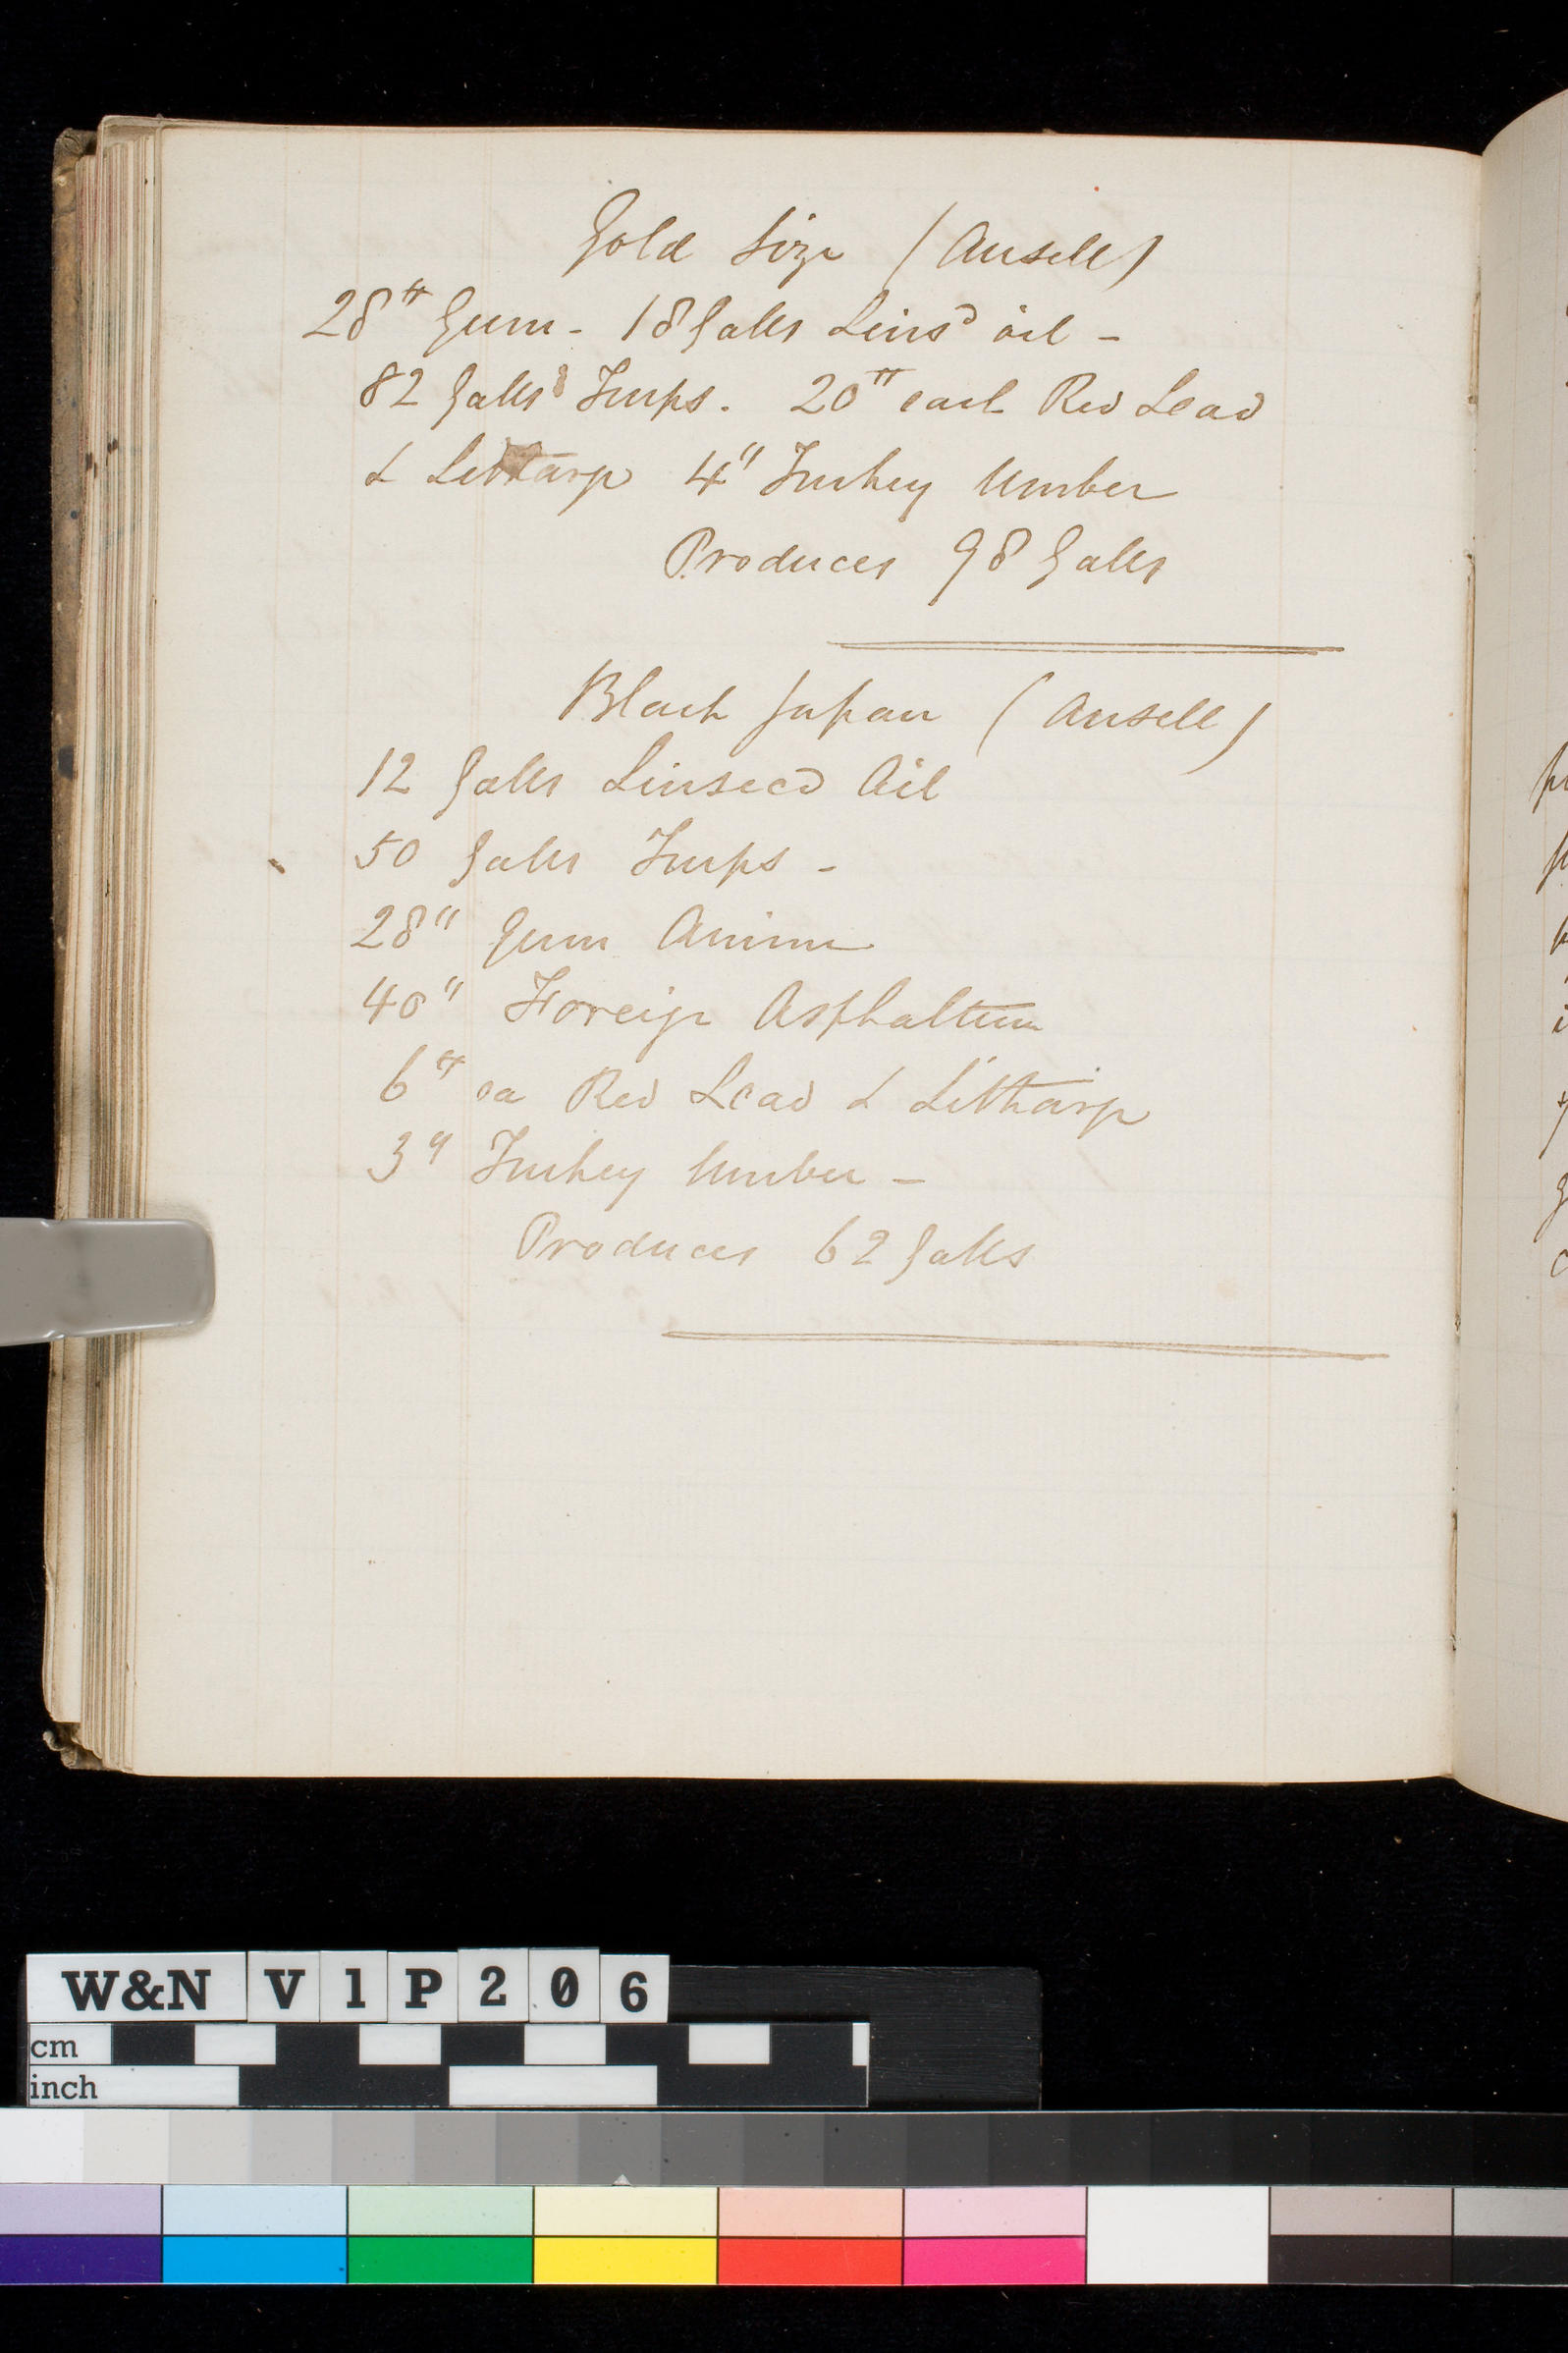 Gold Size (Ansell)
28" Gum - 18 Galls Lins^d oil -
82 Galls Turps. 20" each Red Lead
& Litharge 4" Turkey Umber
Produces 98 Galls
Black Japan (Ansell)
12 Galls Linseed Oil
50 Galls Turps -
28" Gum Anime
40" Foreign Asphaltum
6" ea Red Lead & Litharge
3" Turkey Umber -
Produces 62 Galls
W&N V1P206
cm
inch